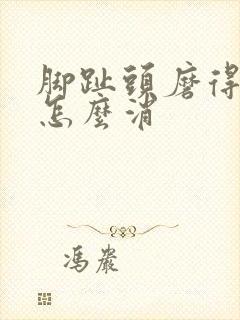 脚趾頭磨得
怎麼消
馮嚴